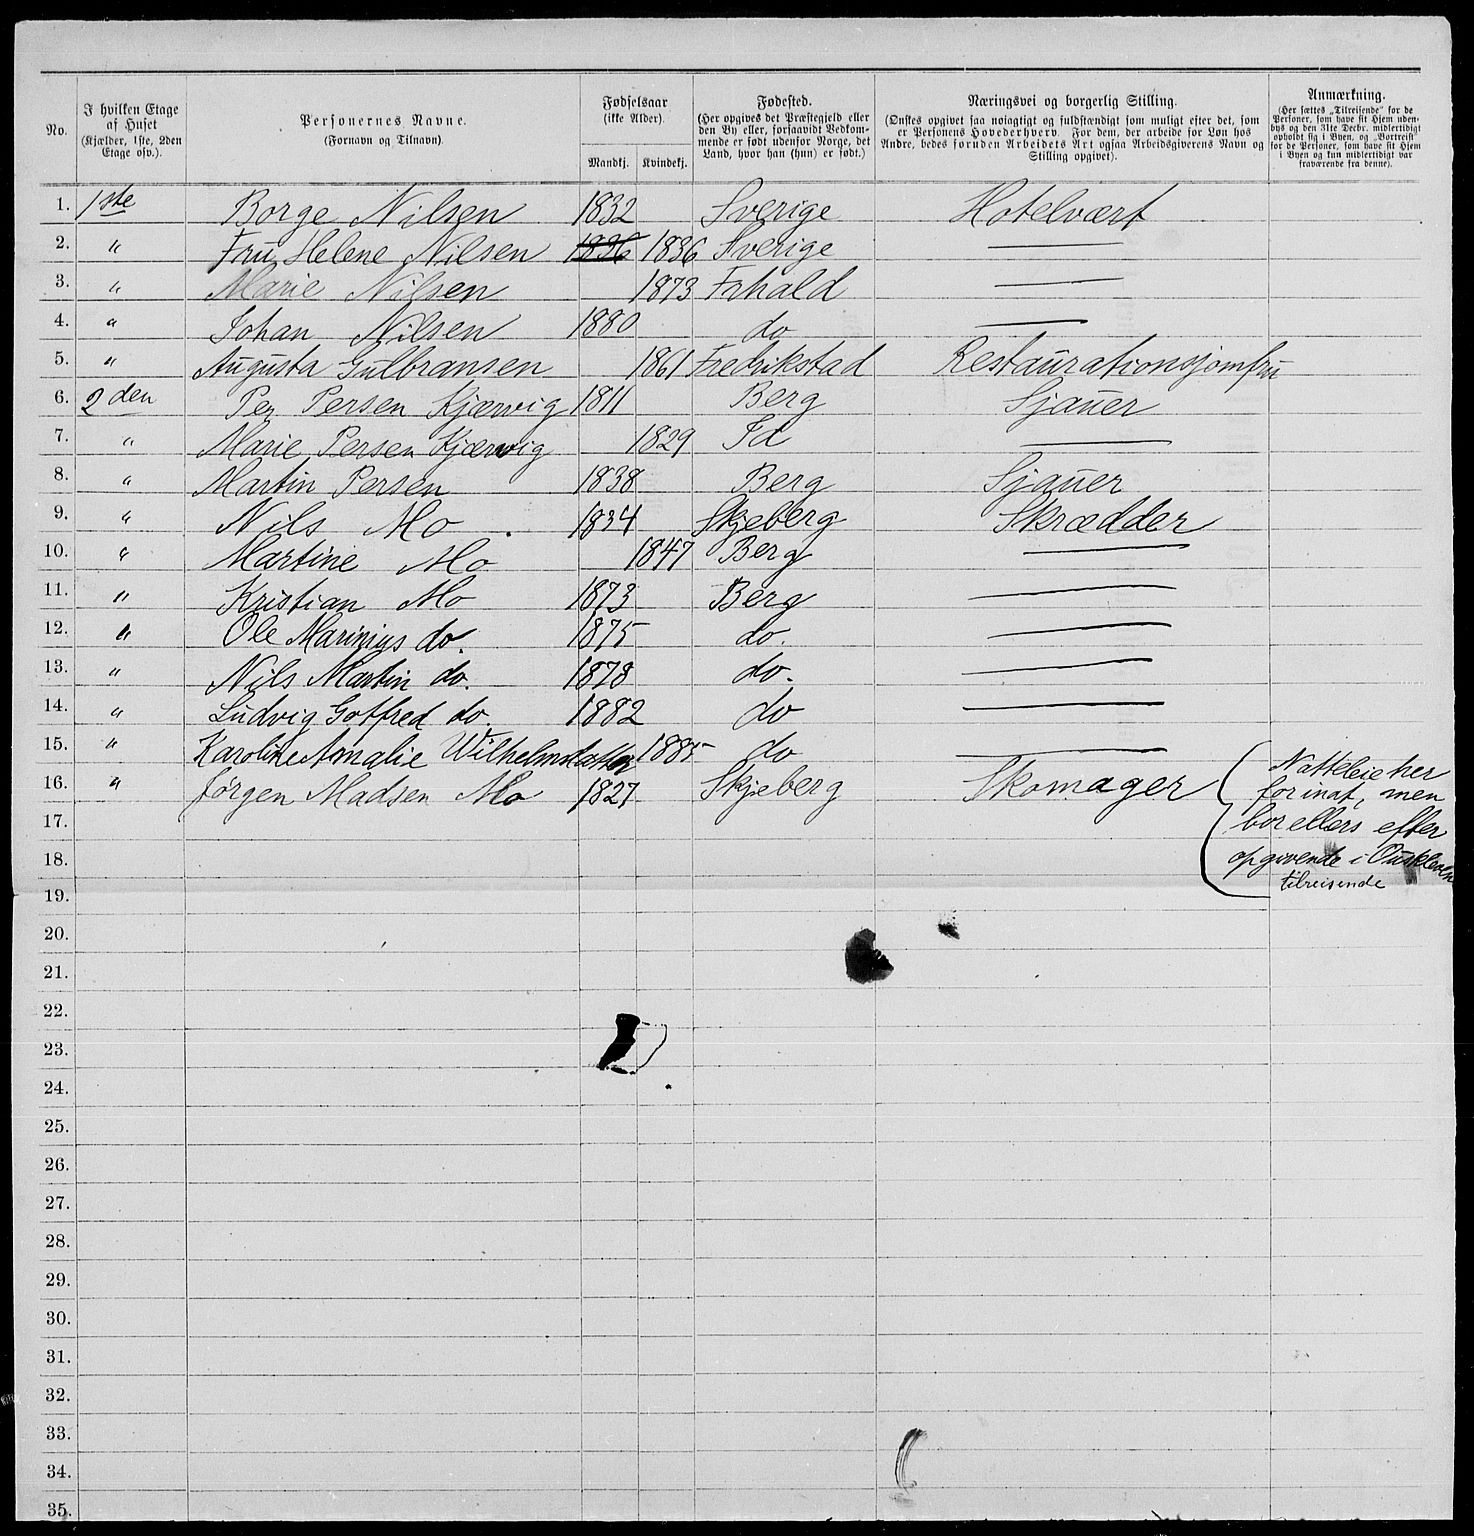 No.
I hvilken Etage
af Huset
(Kjælder, 1ste, 2den
Etage osv.).
Personernes Navne.
(Fornavn og Tilnavn)
Fødselsaar
(ikke Alder).
Mandkj. Kvindekj.
Fødested.
(Her opgives det Præstegjeld eller
den By eller, forsaavidt Vedkom-
mende er født udenfor Norge, det
Land, hvor han (hun) er født.)
Næringsvei og borgerlig Stilling.
(Ønskes opgivet saa nøiagtigt og fuldstændigt som muligt efter det, som
er Personens Hovederhverv. For dem, der arbeide for Løn hos
Andre, bedes foruden Arbeidets Art ogsaa Arbeidsgiverens Navn og
Stilling opgivet).
Anmærkning.
(Her sættes „Tilreisende" for de
Personer, som have sit Hjem uden-
bys og den 31te Decbr. midlertidigt
opholdt sig i Byen, og „Bortreist"
for de Personer, som have sit Hjem
i Byen og kun midlertidigt var
fraværende fra denne).
1. 1ste Borge Nilsen 1832 Sverige Hotelvært
2. " Fru Helene Nilsen 1836 1836 Sverige
3. " Marie Nilsen 1873 Frhald
4. " Johan Nilsen 1880 do
5. " Augusta Gulbransen 1861 Fredrikstad Restaurationsjomfru
6. 2den Per Persen Kjærvig 1811 Berg Sjauer
7. " Marie Persen Kjærvig 1829 Id
8. " Martin Persen 1838 Berg Sjauer
9. " Nils Mo 1834 Skjeberg Skrædder
10. " Martine Mo 1847 Berg
11. " Kristian Mo 1873 Berg
12. " Ole Marinius do. 1875 do.
13. " Nils Martin do. 1878 do.
14. " Ludvig Gotfred do. 1882 do
15. " Karoline Amalie Wilhelmsdatter 1885 do
16. " Jørgen Madsen Mo 1827 Skjeberg Skomager
Natteleie her
for inat, men
bor ellers efter
opgivende i
tilreisende
17.
18.
19.
20.
21.
22.
23.
24.
25.
26.
27.
28.
29.
30.
31.
32.
33.
34.
35.